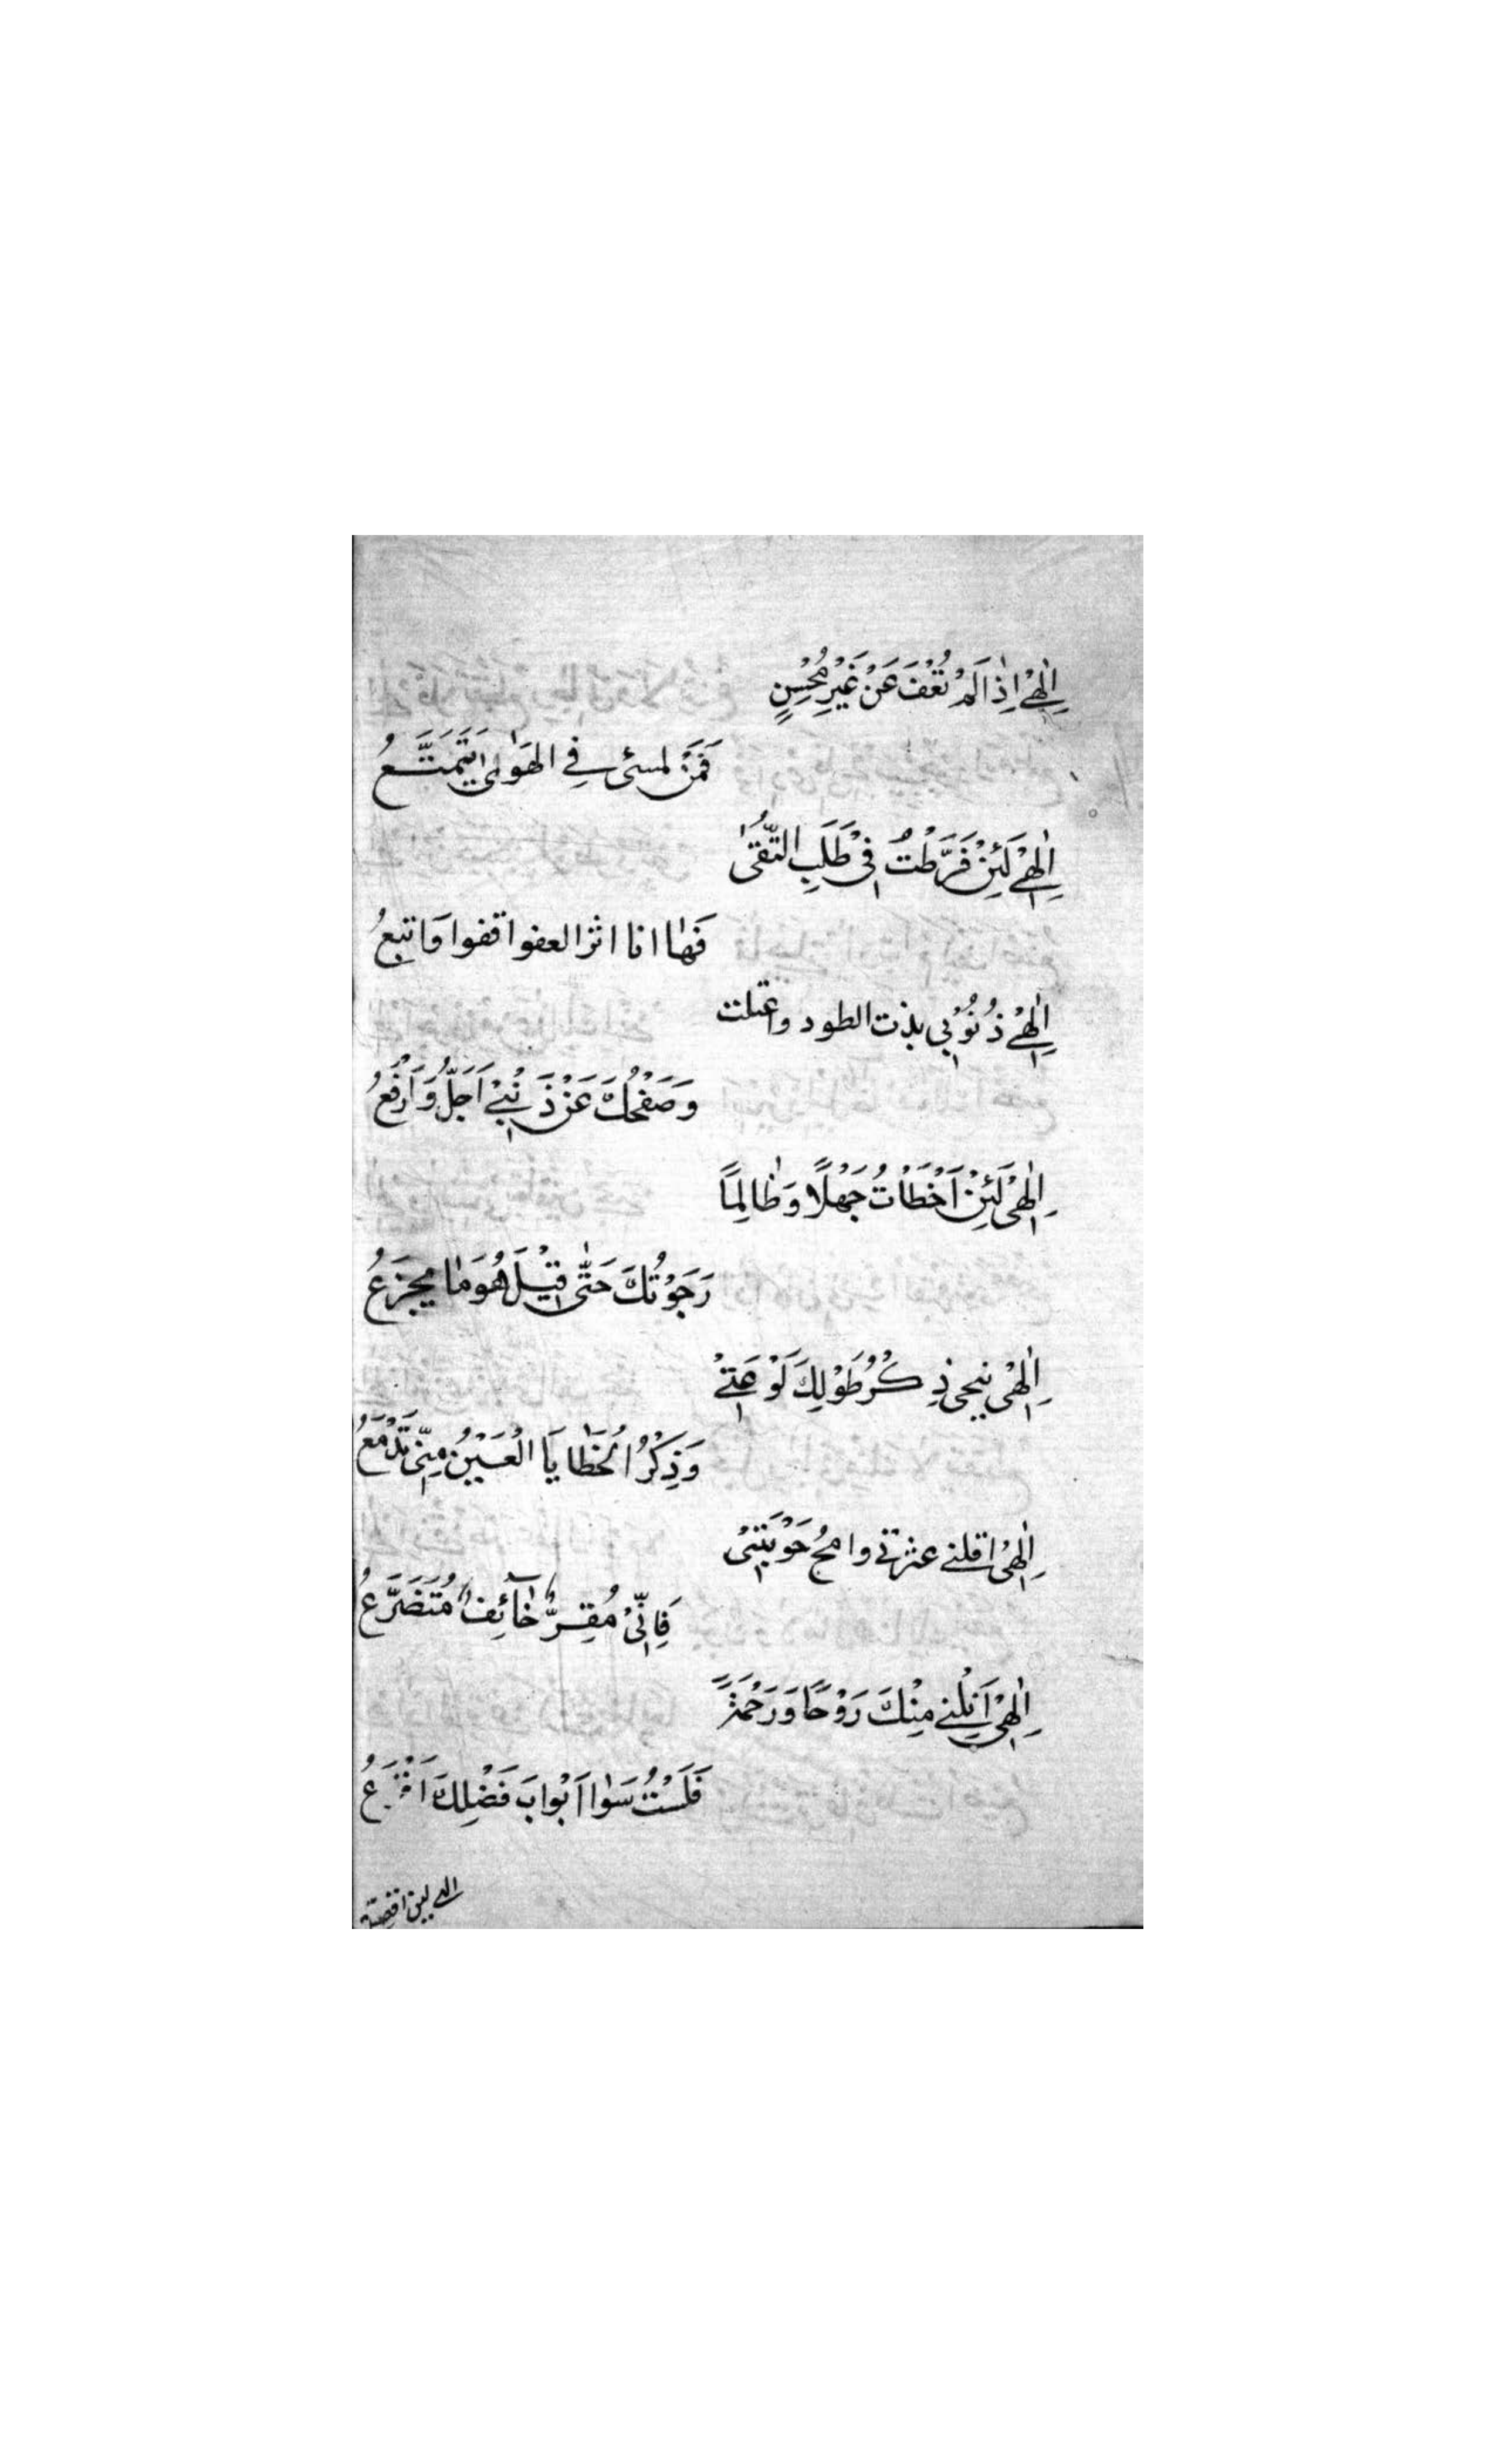 اِلٰهِيْ اِذَا لَمْ تَعْفُ عَنْ غَيْرِ مُحْسِنٍ
فَمَنْ لمسئ فِي الهَوٰى يَتَمَتَّعُ
اِلٰهِيْ لَئِنْ فَرَّطْتُ فِيْ طَلَبِ التُّقٰى
فَهٰا انا اثر العفو اقفوا وَاتبعُ
اِلٰهِيْ ذُنُوْبِي بذت الطود واعتلت
وَصَفْحُكَ عَنْ ذَنْبِيْ اَجَلُّ وَاَرْفَعُ
اِلٰهِيْ لَئِنْ اَخْطَاْتُ جَهْلًا وَطٰالِمَاً
رَجَوْتُكَ حَتّٰى قِيْلَ هُوَ مٰا يَجْزَعُ
اِلٰهِيْ ينحى ذِكْرُ طَوْلِكَ لَوْعَتِيْ
وَذِكْرُ الْخَطٰايَا الْعَيْنُ مِنِّيْ تَدْمَعُ
اِلٰهِيْ اقلني عثرتي وامحُ حَوْبَتِيْ
فَاِنِّيْ مُقِرٌّ خٰآئِفٌ مُتَضَرِّعُ
اِلٰهِيْ اَنِلْنِي مِنْكَ رَوْحًا وَرَحْمَةً
فَلَسْتُ سَوٰا اَبْوابَ فَضْلِكَ اَقْرَعُ
الهي لين اقصيـ